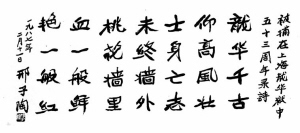 被捕在上海龙华獄中
五十三周年录诗
龙华千古
仰高风壮
士身亡志
未终墙外
桃花墙里
血一般鲜
艳一般红
一九八七年
二月十一日
邢子陶